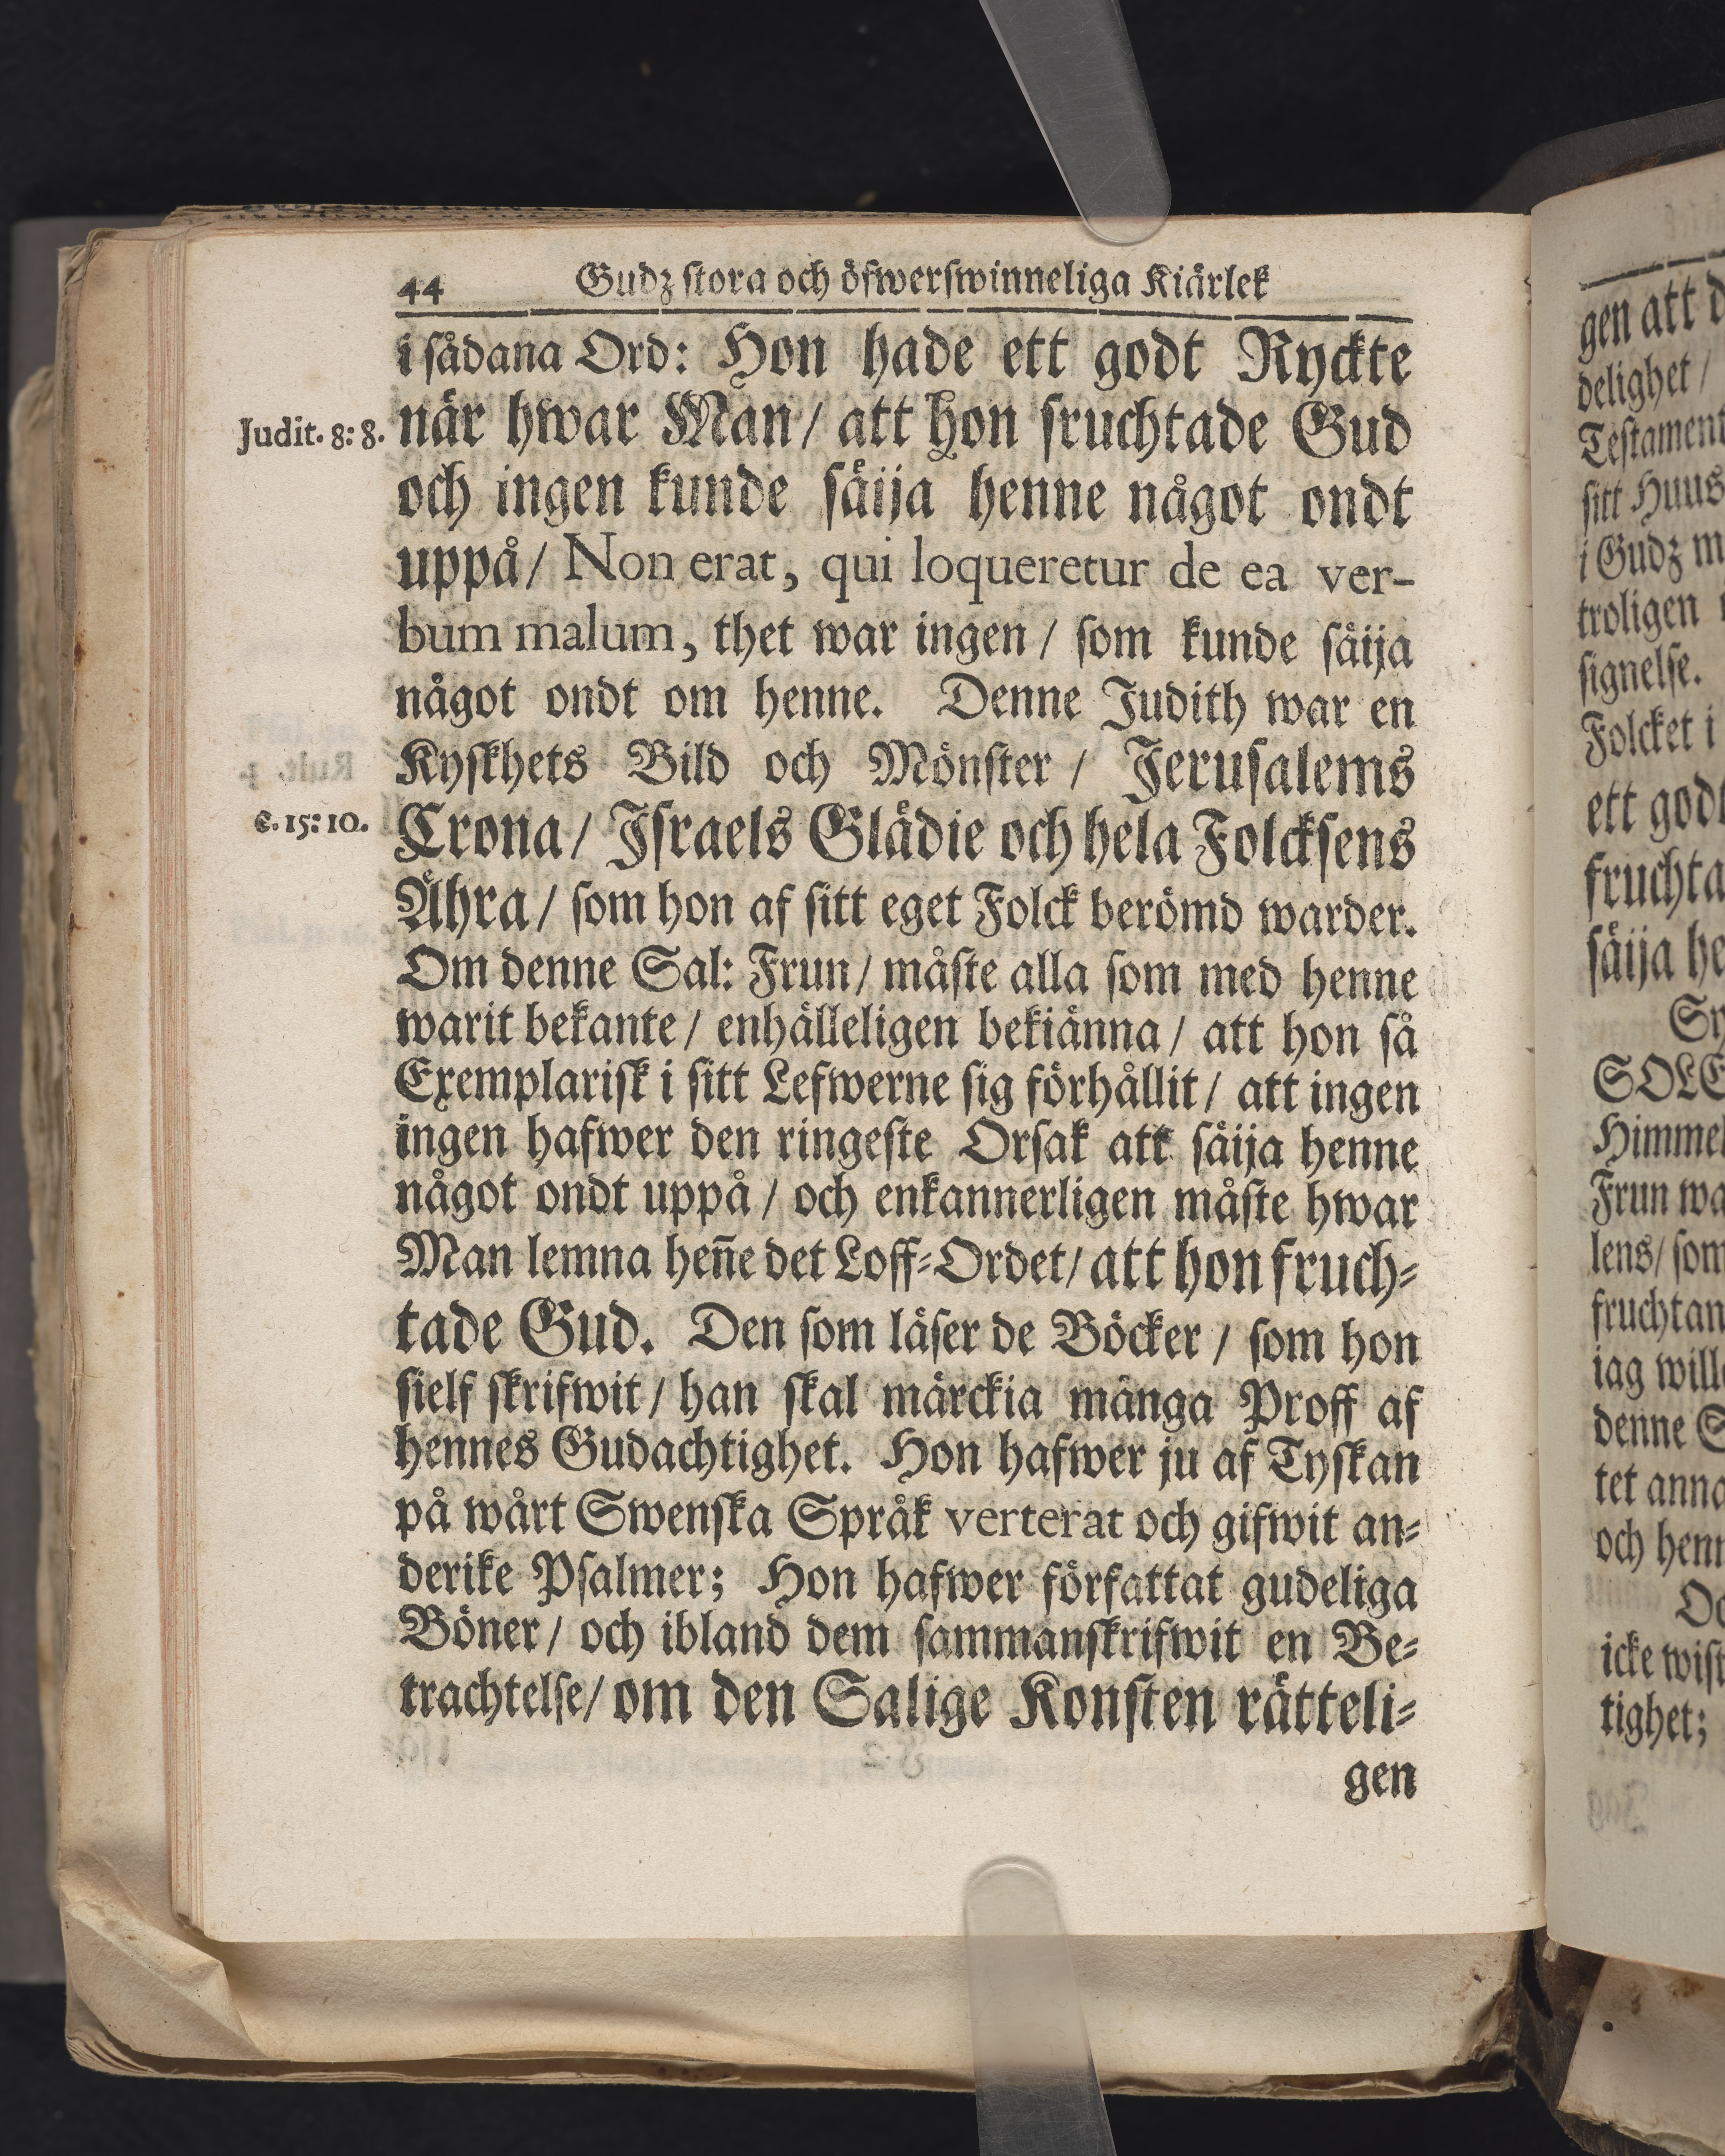 44 Gudz stora och öfwerswinneliga Kiärlek
i sådana Ord: Hon hade ett godt Ryckte
Judit. 8: 8. när hwar Man / att hon fruchtade Gud
och ingen kunde säija henne något ondt
uppå / Non erat, qui loqueretur de ea ver-
bum malum, thet war ingen / som kunde säija
något ondt om henne. Denne Judith war en
Kyskhets Bild och Mönster / Jerusalems
c. 15: 10. Crona / Israels Glädie och hela Folcksens
Ähra / som hon af sitt eget Folck berömd warder.
Om denne Sal: Frun / måste alla som med henne
warit bekante / enhälleligen bekiänna / att hon så
Exemplarisk i sitt Lefwerne sig förhållit / att ingen
ingen hafwer den ringeste Orsak att säija henne
något ondt uppå / och enkannerligen måste hwar
Man lemna hen̄e det Loff-Ordet / att hon fruch-
tade Gud. Den som läser de Böcker / som hon
sielf skrifwit / han skal märckia många Proff af
hennes Gudachtighet. Hon hafwer ju af Tyskan
på wårt Swenska Språk verterat och gifwit an-
derike Psalmer; Hon hafwer författat gudeliga
Böner / och ibland dem sammanskrifwit en Be-
trachtelse / om den Salige Konsten rätteli-
gen
gen att
delighet /
Testament
sitt Huus
i Gudz
troligen
signelse.
Folcket i
ett godt
fruchta
säija he
SOLE
Himmel
Frun wa
lens / som
fruchtan
iag will
denne
tet anna
och henn
icke wist
tighet;